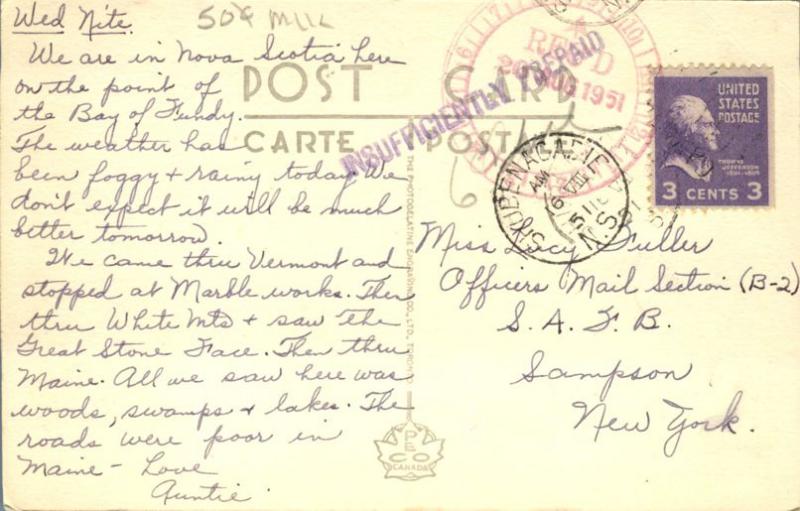 Wed Nite.
50¢ MILL
We are in Nova Scotia here
on the point of
the Bay of Fundy.
The weather has
been foggy + rainy today. We
don't expect it will be much
better tomorrow.
We came thru Vermont and
stopped at Marble works. Then
thru White Mts + saw the
Great Stone Face. Then thru
Maine. All we saw here was
woods, swamps + lakes. The
roads were poor in
Maine - Love
Auntie.
POST CARD
CARTE POSTALE
INSUFFICIENTLY PREPAID
REC'D
1951
SHUBENACADIE
AM
N.S.
THE PHOTOGELATINE ENGRAVING CO., LTD., TORONTO
PECO
CANADA
UNITED
STATES
POSTAGE
THOMAS
JEFFERSON
3 CENTS 3
Miss Lucy Fuller
Officers Mail Section (B-2)
S. A. F. B.
Sampson
New York.